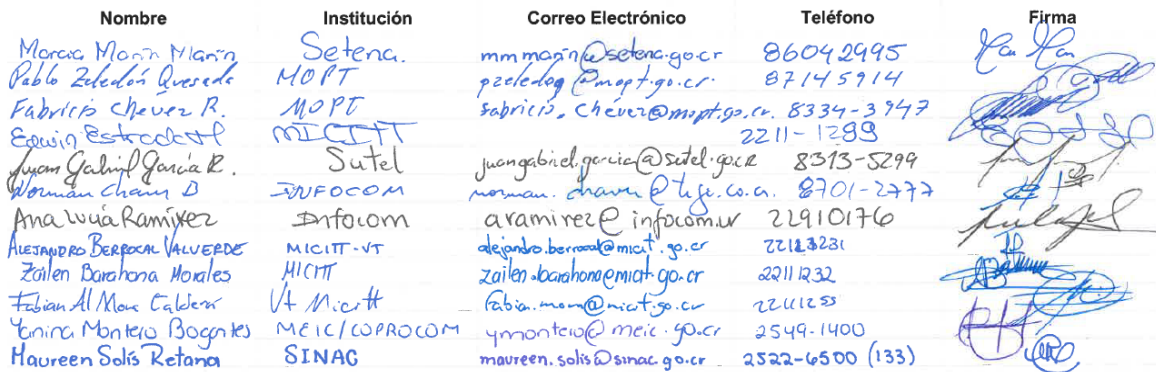 Nombre Institución Correo Electrónico Teléfono Firma
Marcia Marín Marín Setena. mmmarin@setena.go.cr 86042995
Pablo Zeledón Quesada MOPT pzeledoq@mopt.go.cr. 87145914
Fabricio Chevez R. MOPT fabricio.chevez@mopt.go.cr. 8334-3947
Edwin Estrada H MICITT 2211-1289
Juan Gabriel García R. Sutel juangabriel.garcia@sutel.go.cr 8313-5299
Norman INFOCOM 8701-2777
Ana Lucía Ramírez Infocom aramirez@infocom.cr 22910176
ALEJANDRO BERROCAL VALVERDE MICITT-VT alejandro.berrocal@micit.go.cr 22113231
Zailen Barahona Morales MICITT zailen.barahona@micit.go.cr 22111232
Fabian Vt Micitt
Yanina Montero Bogantes MEIC/COPROCOM ymontero@meic.go.cr 2549-1400
Maureen Solís Retana SINAC maureen.solis@sinac.go.cr 2522-6500 (133)